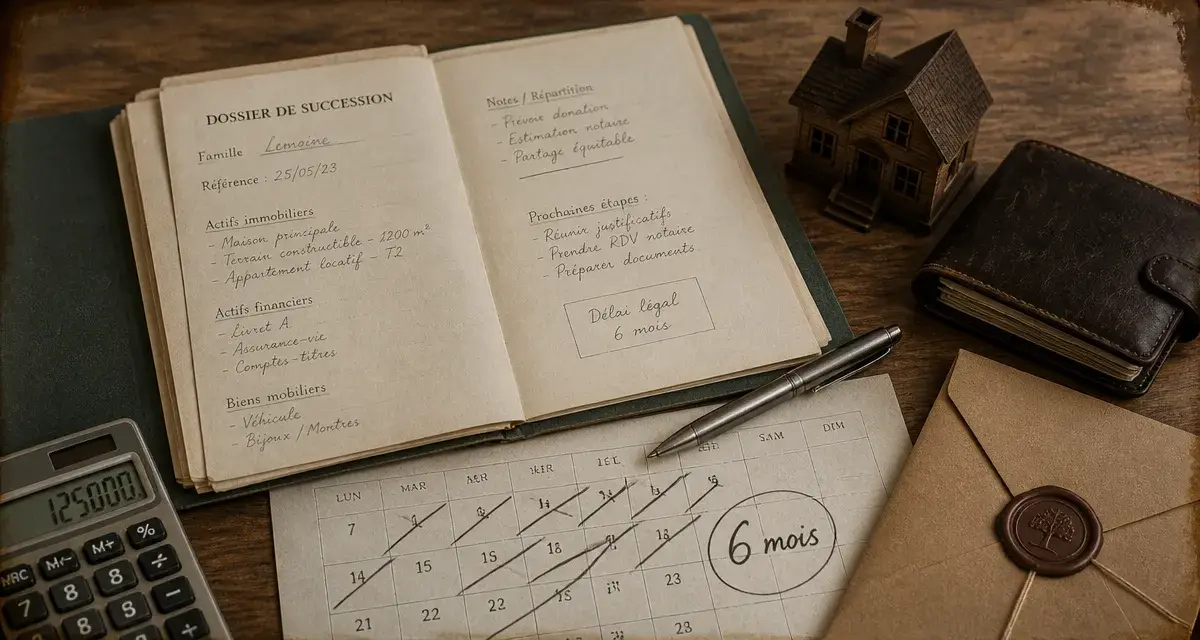 DOSSIER DE SUCCESSION
Famille Lemoine
Référence : 25/05/23
Actifs immobiliers
- Maison principale
- Terrain constructible - 1200 m²
- Appartement locatif - T2
Actifs financiers
- Livret A
- Assurance-vie
- Comptes-titres
Biens mobiliers
- Véhicule
- Bijoux / Montres
Notes / Répartition
- Prévoir donation
- Estimation notaire
- Partage équitable
Prochaines étapes :
- Réunir justificatifs
- Prendre RDV notaire
- Préparer documents
Délai légal
6 mois
LUN MAR SAM DIM
7
14 15 15 18 18
21 22 22 23
23
6 mois
125000.
MRC M+ %
8 8 ÷
7 8 8 −
+